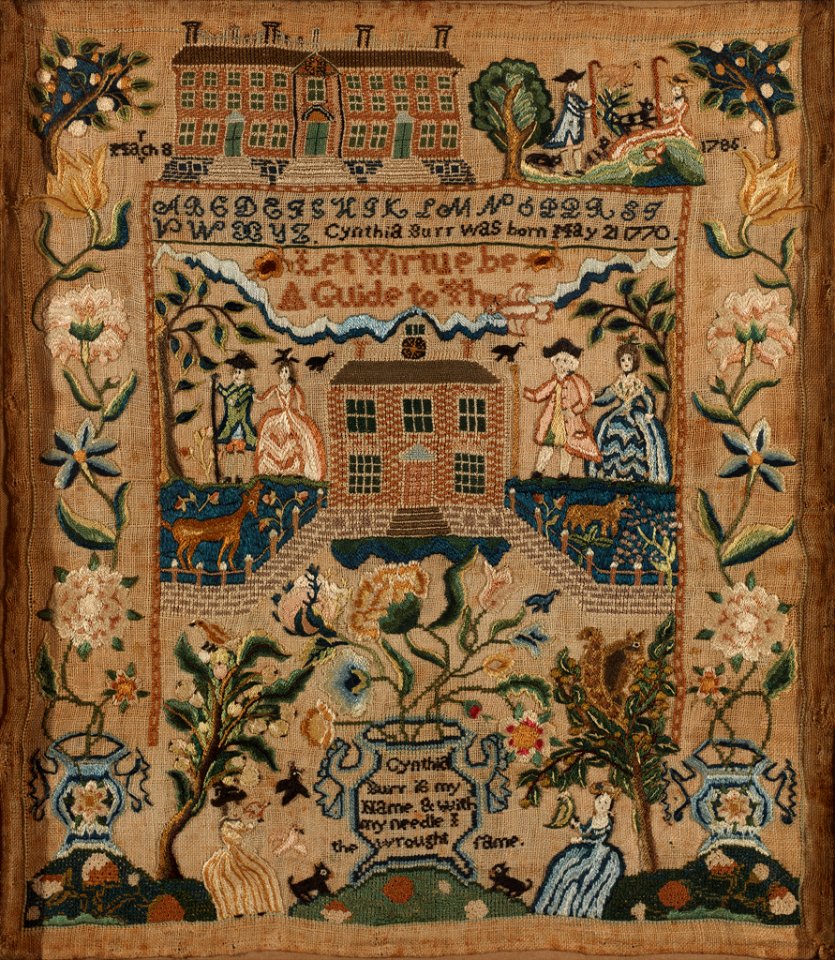 March 8 1786.
A B C D E F G H I K L M N O P Q R S T
V W X Y Z. Cynthia Burr was born May 21 1770.
Let Virtue be
A Guide to The
Cynthia
Burr is my
Name & with
my needle I
the wrought ſame.